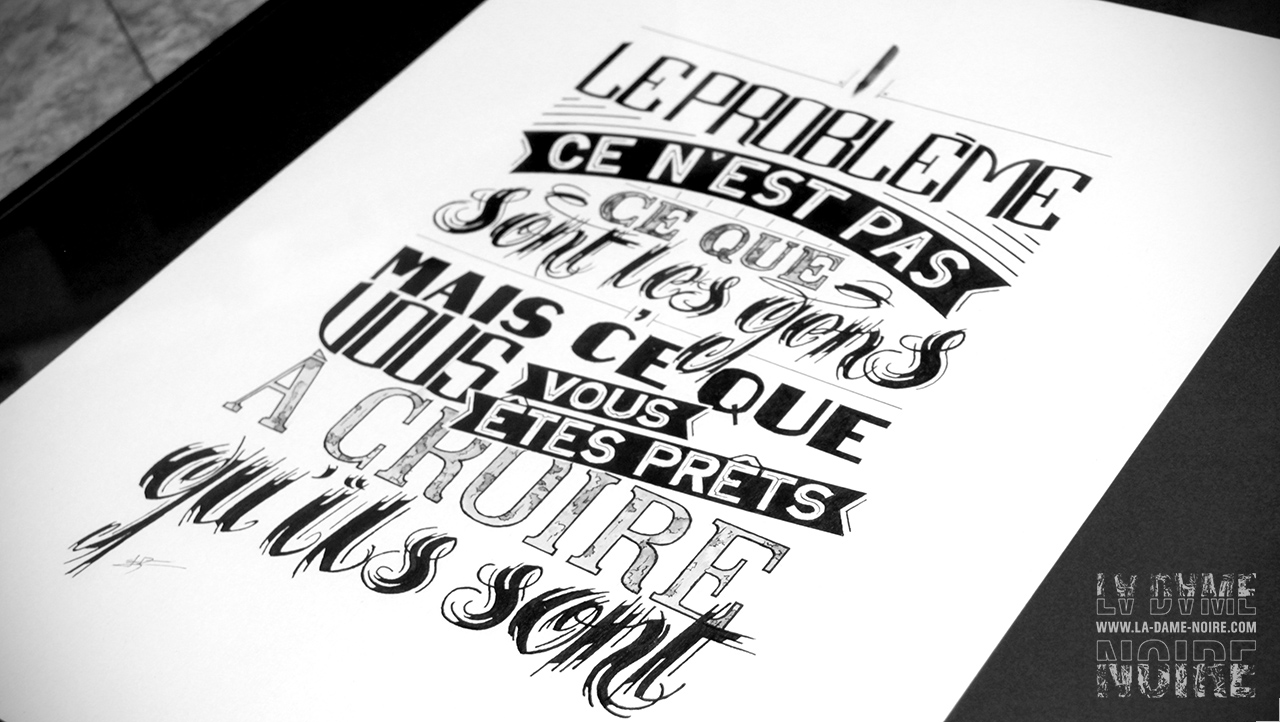 LE PROBLÈME
CE N'EST PAS
CE QUE
sont les gens
MAIS C'E QUE
VOUS VOUS
ÊTES PRÊTS
À CROIRE
qu'ils sont
LA DAME
WWW.LA-DAME-NOIRE.COM
NOIRE